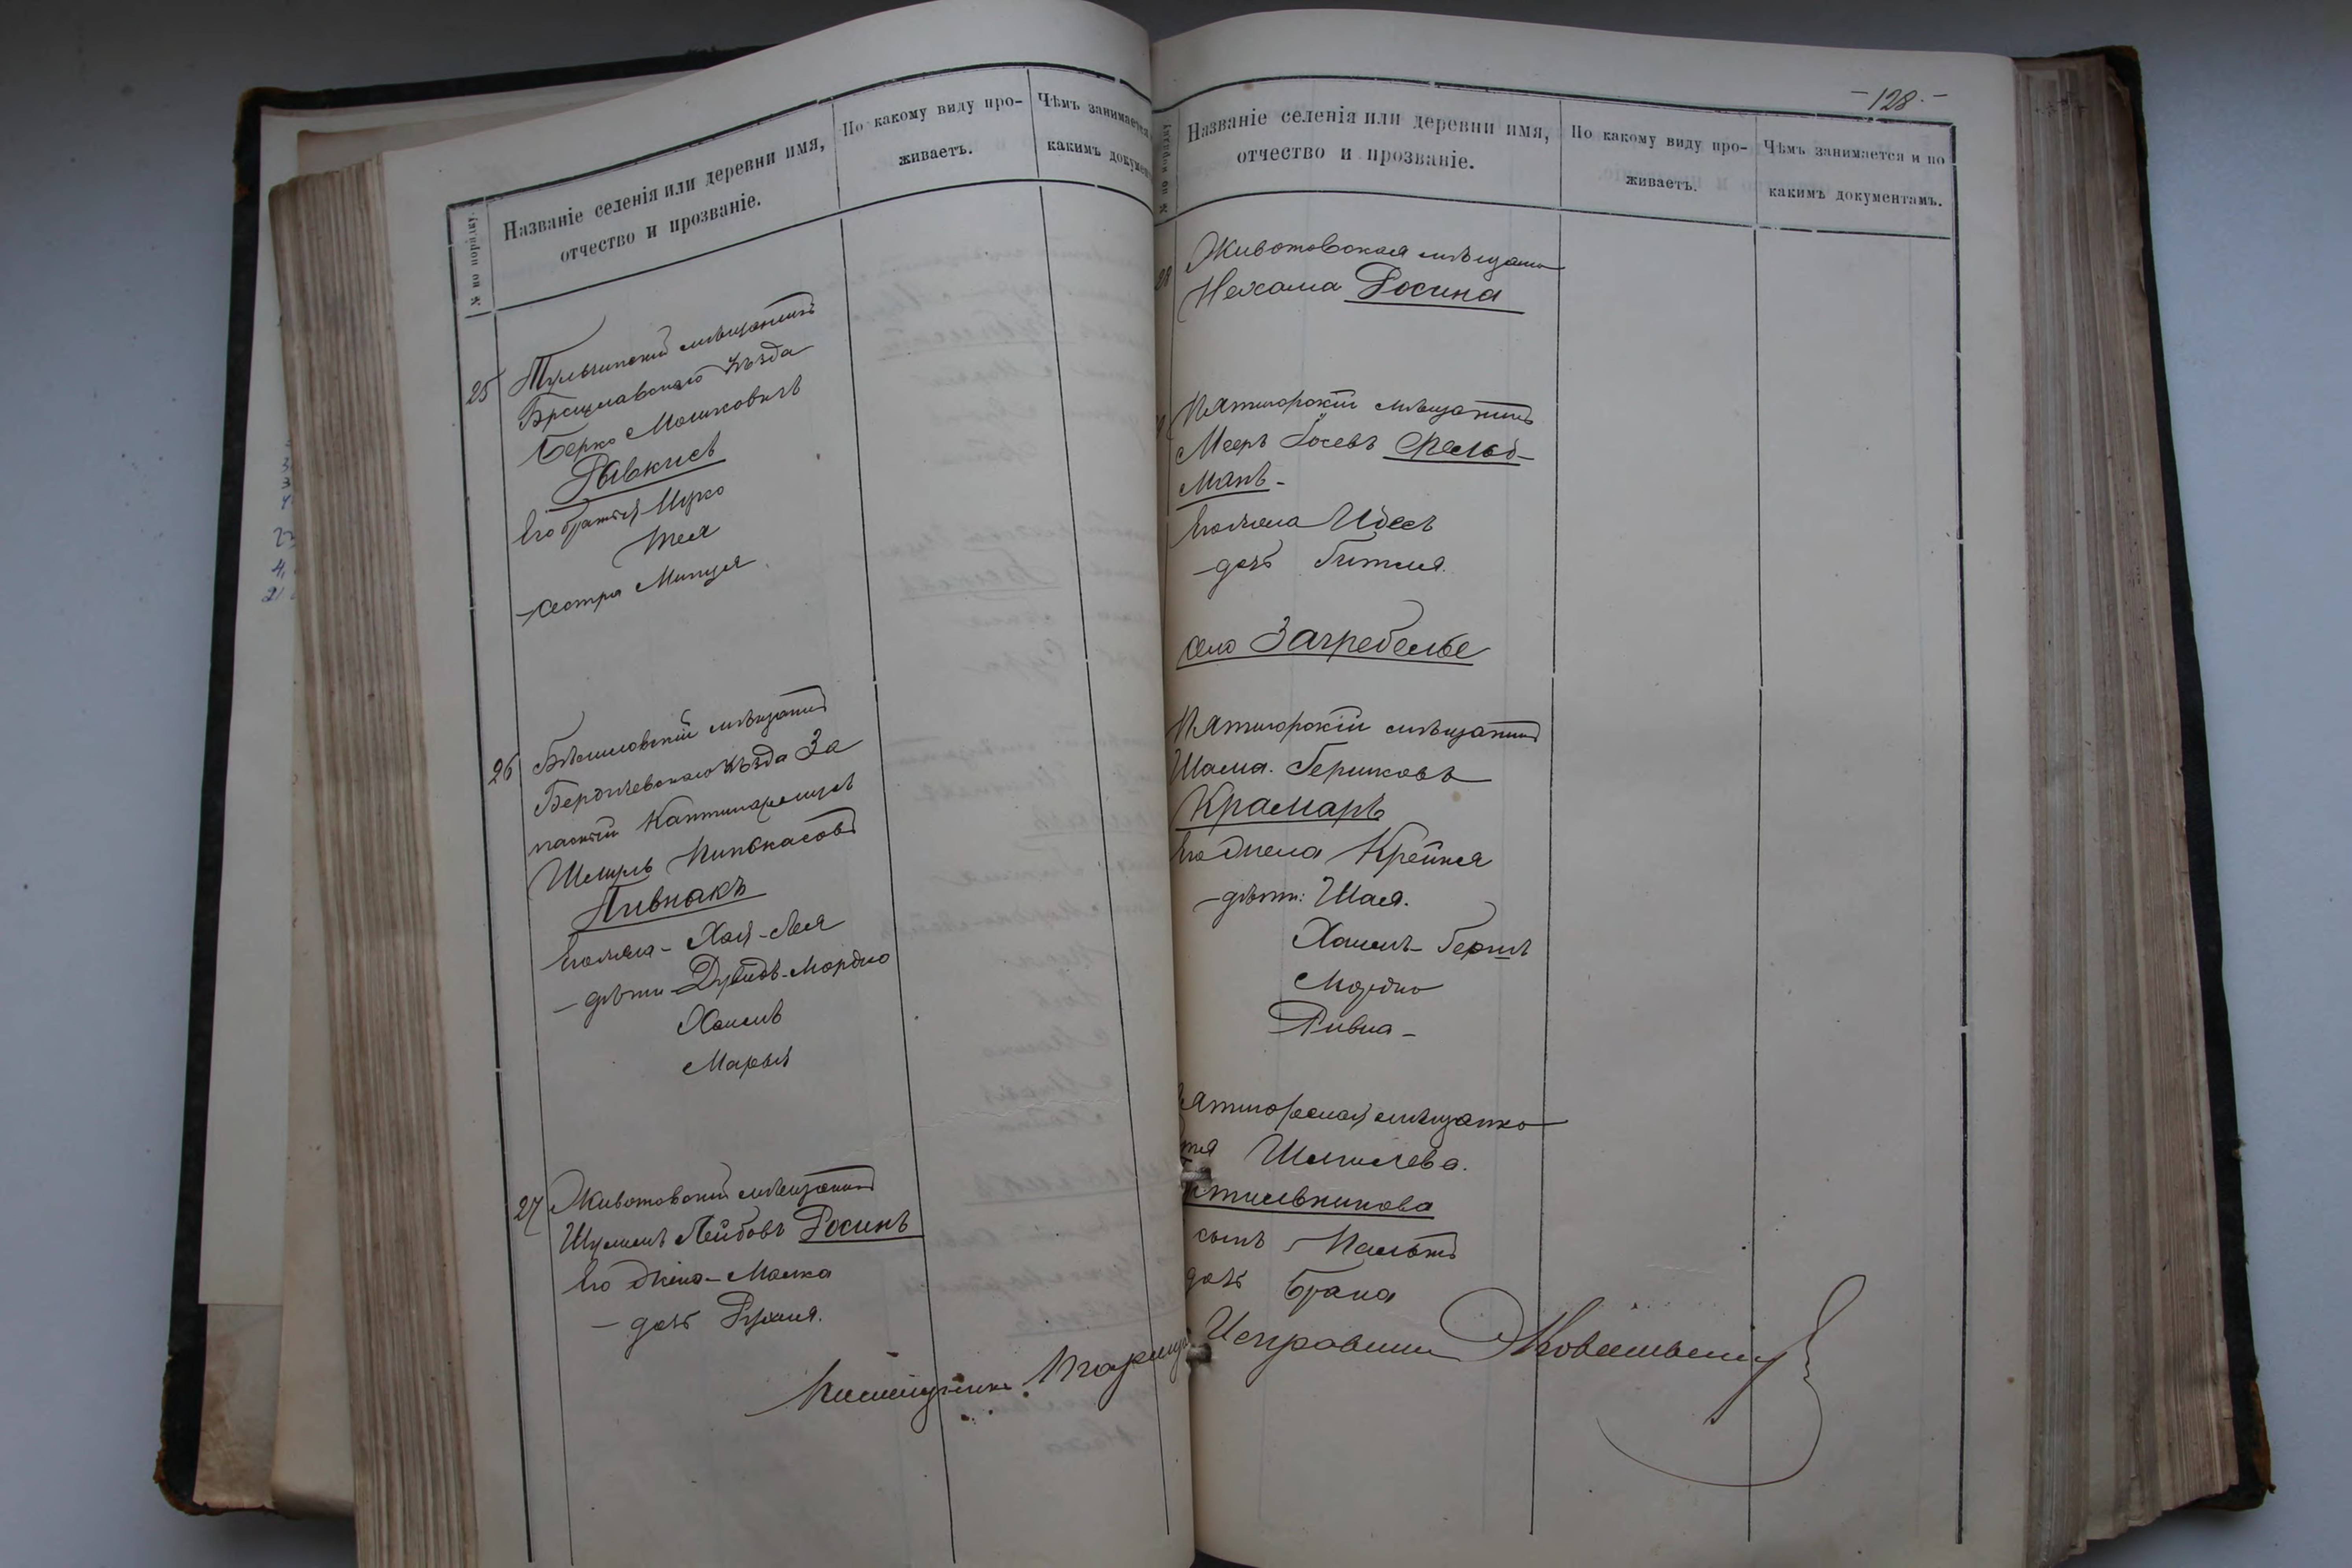 № по порядку.
Названіе селенія или деревни имя,
отчество и прозваніе.
По какому виду про-
живаетъ.
Чѣмъ занимается
какимъ докумен
25
Тульчинскій мѣщанинъ
Брацлавскаго уѣзда
Берко Мошковичъ
Рывкисъ
Его братья Ицко
Шея
сестра Минця
26
Бѣлиловскій мѣщанинъ
Бердичевскаго уѣзда За
пасный
Шмиль Пинькасовъ
Пивнакъ
Его жена - Хая-Лея
- дѣти - Дувидъ-Мордко
Хаимъ
Марьям
27
Животовскій мѣщанинъ
Шулимъ Лейбовъ Росинъ
Его жена - Малка
- дочь Рухля.
- 128 -
№ по порядку
Названіе селенія или деревни имя,
отчество и прозваніе.
По какому виду про-
живаетъ.
Чѣмъ занимается и по
какимъ документамъ.
28
Животовская мѣщанка
Нехама Росина
Пятигорскій мѣщанинъ
Мееръ Іосевъ Фельд-
манъ -
Его жена Идесъ
- дочь Гитля.
село Загребелье
Пятигорскій мѣщанинъ
Шама. Гершковъ
Крамаръ
Его жена Крейня
- дѣти: Шая.
Хаимъ-Гершъ
Мордко
Ривка -
Пятигорская мѣщанка
Шмилева.
тильникова
сынъ
дочь Брана
Исправникъ